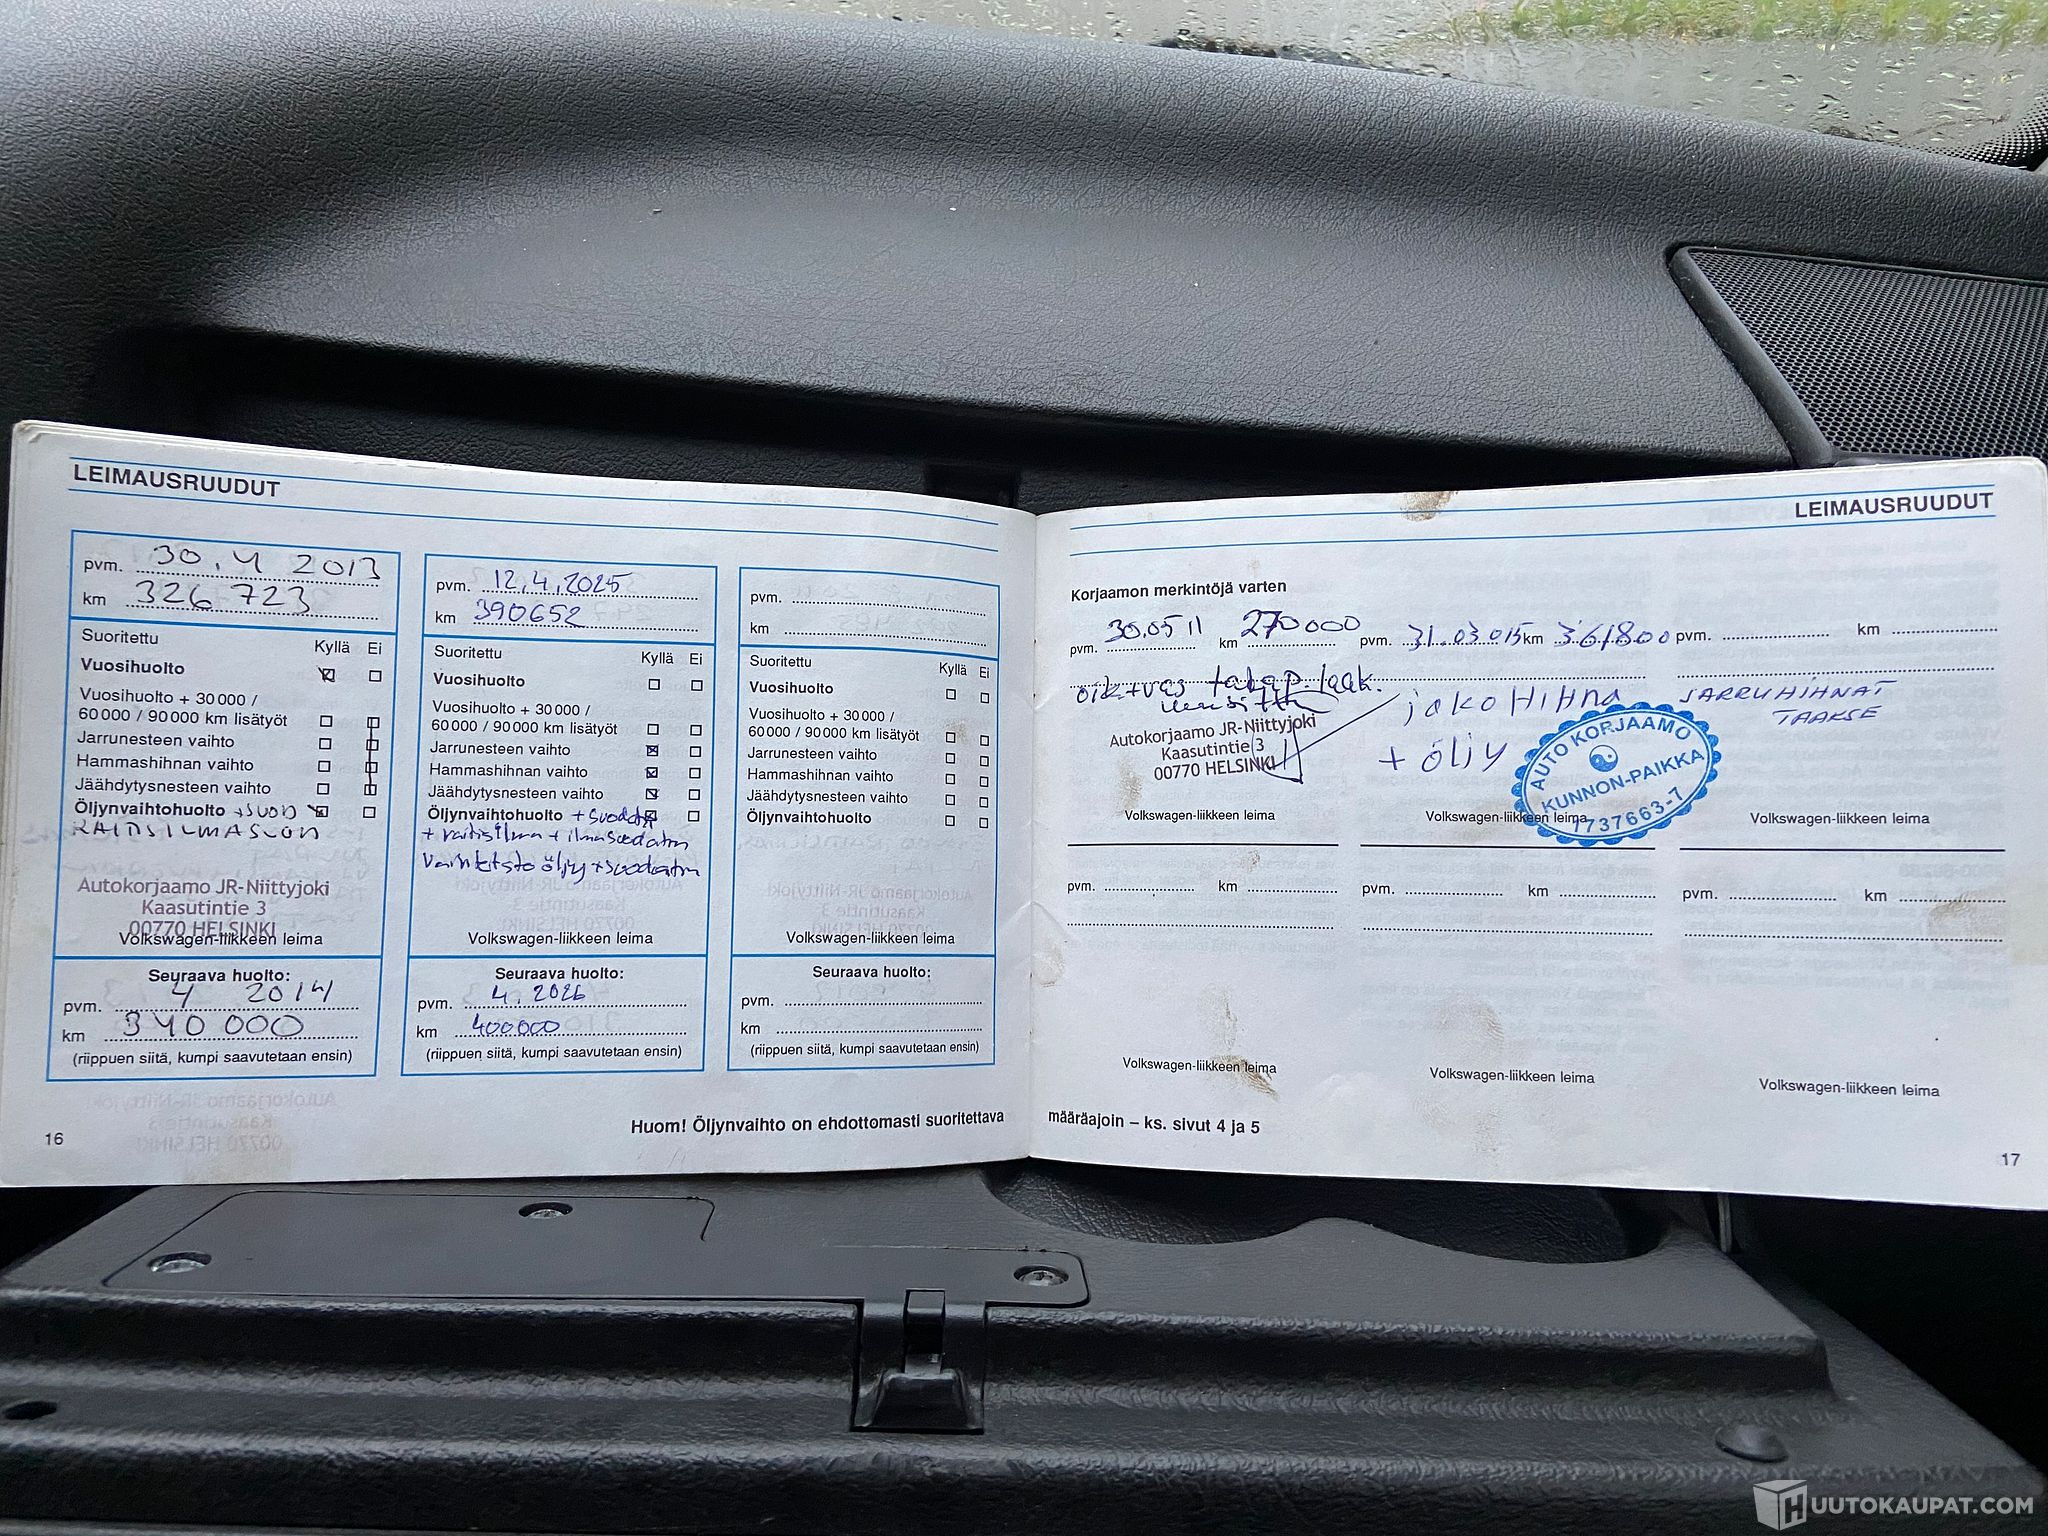 LEIMAUSRUUDUT
pvm. 30.4 2013
km 326 723
Suoritettu Kyllä Ei
Vuosihuolto
Vuosihuolto + 30 000 /
60 000 / 90 000 km lisätyöt
Jarrunesteen vaihto
Hammashihnan vaihto
Jäähdytysnesteen vaihto
Öljynvaihtohuolto + suod
RAITISILMASUOD
Autokorjaamo JR-Niittyjoki
Kaasutintie 3
00770 HELSINKI
Volkswagen-liikkeen leima
Seuraava huolto:
pvm. 4 2014
km 340 000
(riippuen siitä, kumpi saavutetaan ensin)
pvm. 12.4.2025
km 390652
Suoritettu Kyllä Ei
Vuosihuolto
Vuosihuolto + 30 000 /
60 000 / 90 000 km lisätyöt
Jarrunesteen vaihto
Hammashihnan vaihto
Jäähdytysnesteen vaihto
Öljynvaihtohuolto + suodatin
+ raitisilma + ilmasuodatin
Vaihteisto öljy + suodatin
Volkswagen-liikkeen leima
Seuraava huolto:
pvm. 4. 2026
km 400000
(riippuen siitä, kumpi saavutetaan ensin)
pvm.
km
Suoritettu Kyllä Ei
Vuosihuolto
Vuosihuolto + 30 000 /
60 000 / 90 000 km lisätyöt
Jarrunesteen vaihto
Hammashihnan vaihto
Jäähdytysnesteen vaihto
Öljynvaihtohuolto
Volkswagen-liikkeen leima
Seuraava huolto:
pvm.
km
(riippuen siitä, kumpi saavutetaan ensin)
Huom! Öljynvaihto on ehdottomasti suoritettava
16
LEIMAUSRUUDUT
Korjaamon merkintöjä varten
pvm. 30.05 11 km 270000
oik + vas takap. laak.
Autokorjaamo JR-Niittyjoki
Kaasutintie 3
00770 HELSINKI
Volkswagen-liikkeen leima
pvm. 31.03.015 km 361800
jakoHihna
+ öljy
AUTO KORJAAMO
KUNNON-PAIKKA
1737663-7
Volkswagen-liikkeen leima
pvm. km
JARRUHIHNAT
TAAKSE
Volkswagen-liikkeen leima
pvm. km
Volkswagen-liikkeen leima
pvm. km
Volkswagen-liikkeen leima
pvm. km
Volkswagen-liikkeen leima
määräajoin – ks. sivut 4 ja 5
17
HUUTOKAUPAT.COM